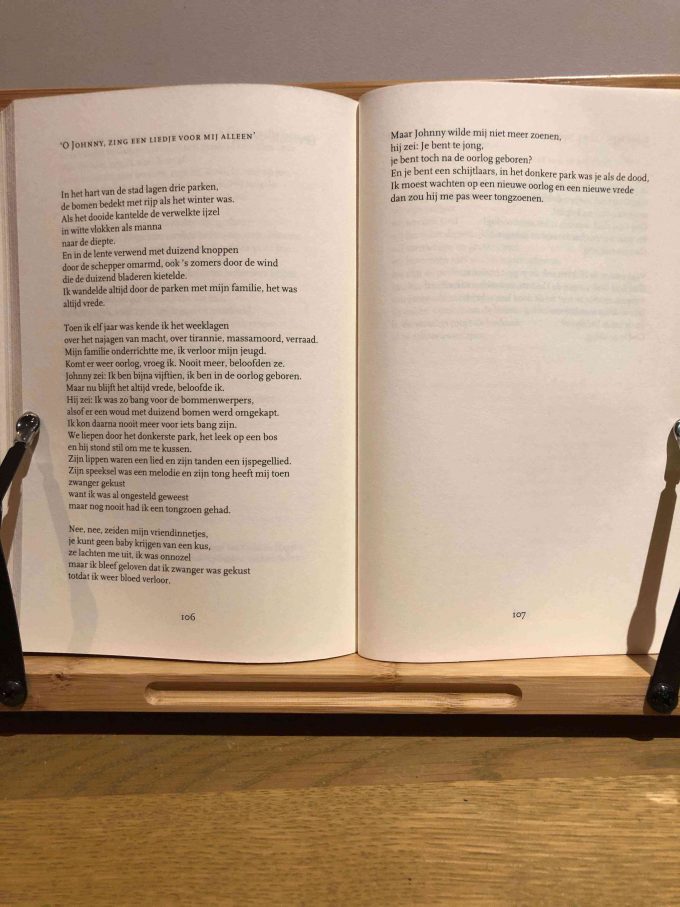 ‘O Johnny, zing een liedje voor mij alleen’
In het hart van de stad lagen drie parken,
de bomen bedekt met rijp als het winter was.
Als het dooide kantelde de verwelkte ijzel
in witte vlokken als manna
naar de diepte.
En in de lente verwend met duizend knoppen
door de schepper omarmd, ook ’s zomers door de wind
die de duizend bladeren kietelde.
Ik wandelde altijd door de parken met mijn familie, het was
altijd vrede.
Toen ik elf jaar was kende ik het weeklagen
over het najagen van macht, over tirannie, massamoord, verraad.
Mijn familie onderrichtte me, ik verloor mijn jeugd.
Komt er weer oorlog, vroeg ik. Nooit meer, beloofden ze.
Johnny zei: Ik ben bijna vijftien, ik ben in de oorlog geboren.
Maar nu blijft het altijd vrede, beloofde ik.
Hij zei: Ik was zo bang voor de bommenwerpers,
alsof er een woud met duizend bomen werd omgekapt.
Ik kon daarna nooit meer voor iets bang zijn.
We liepen door het donkerste park, het leek op een bos
en hij stond stil om me te kussen.
Zijn lippen waren een lied en zijn tanden een ijspegellied.
Zijn speeksel was een melodie en zijn tong heeft mij toen
zwanger gekust
want ik was al ongesteld geweest
maar nog nooit had ik een tongzoen gehad.
Nee, nee, zeiden mijn vriendinnetjes,
je kunt geen baby krijgen van een kus,
ze lachten me uit, ik was onnozel
maar ik bleef geloven dat ik zwanger was gekust
totdat ik weer bloed verloor.
106
Maar Johnny wilde mij niet meer zoenen,
hij zei: Je bent te jong,
je bent toch na de oorlog geboren?
En je bent een schijtlaars, in het donkere park was je als de dood,
Ik moest wachten op een nieuwe oorlog en een nieuwe vrede
dan zou hij me pas weer tongzoenen.
107